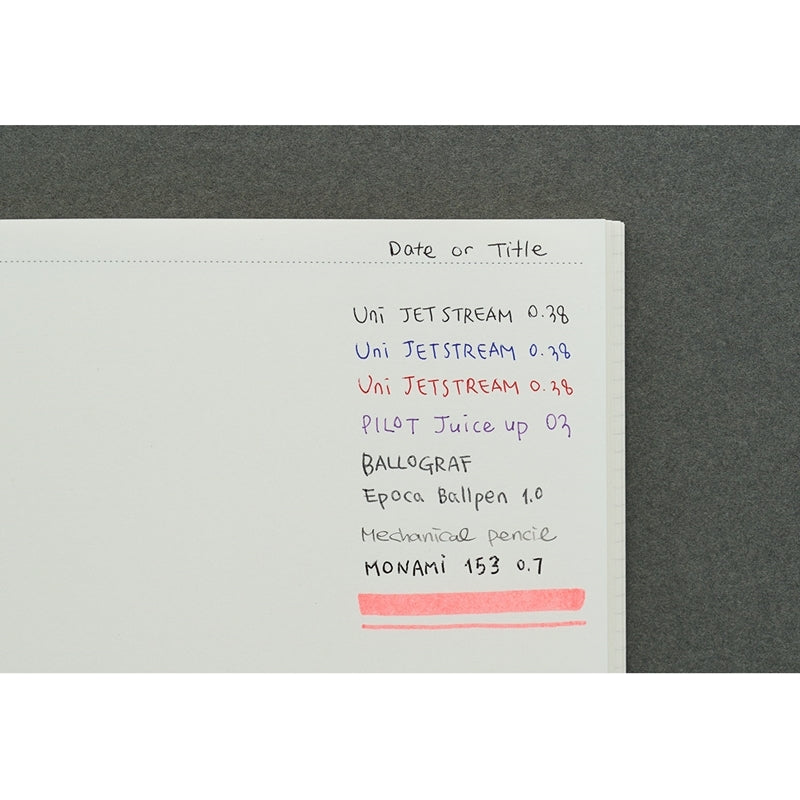 Date or Title
Uni JETSTREAM 0.38
Uni JETSTREAM 0.38
Uni JETSTREAM 0.38
PILOT Juice up 03
BALLOGRAF
Epoca Ballpen 1.0
Mechanical pencil
MONAMi 153 0.7